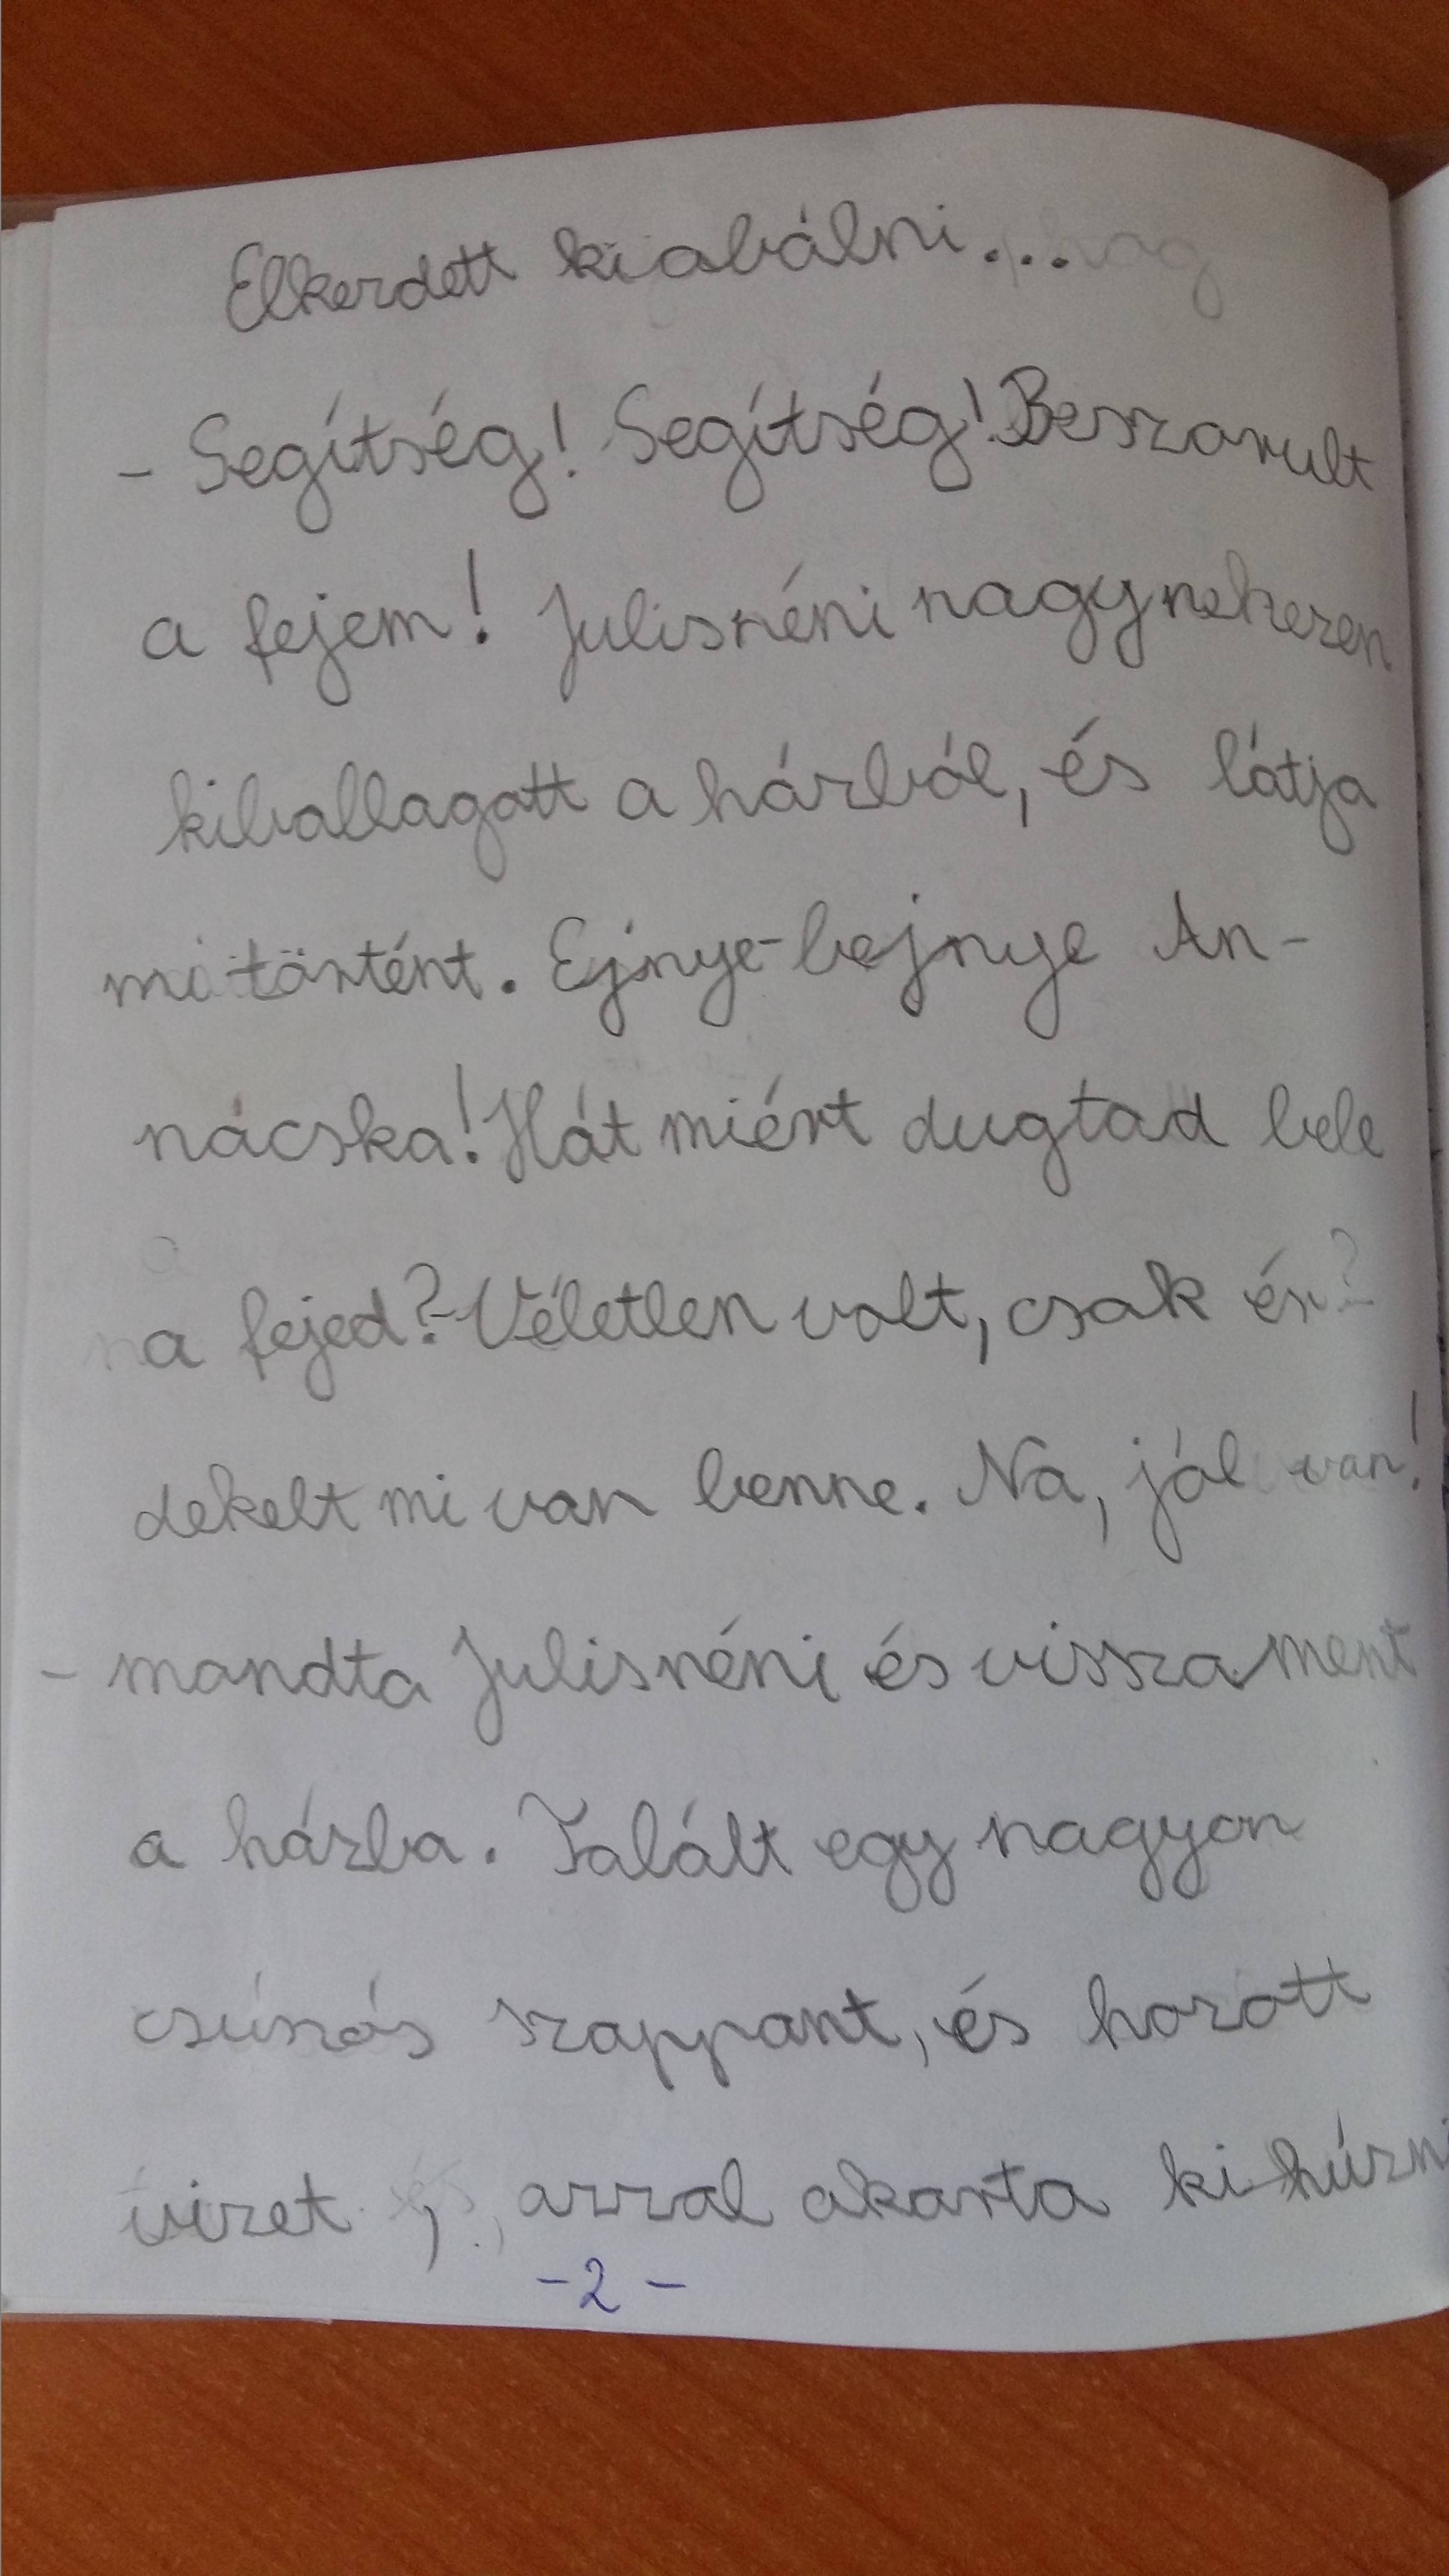 Elkerdett kiabálni...
- Segítség! Segítség! Beszorult
a fejem! Julisnéni nagynehezen
kiballagott a házból, és látja
mi történt. Ejnye-bejnye An-
nácska! Hát miért dugtad bele
a fejed? - Véletlen volt, csak ér-
dekelt mi van benne. Na, jól van!
- mondta Julisnéni és vissza ment
a házba. Talált egy nagyon
csúszós szappant, és hozott
vizet, azzal akarta ki húzni
- 2 -